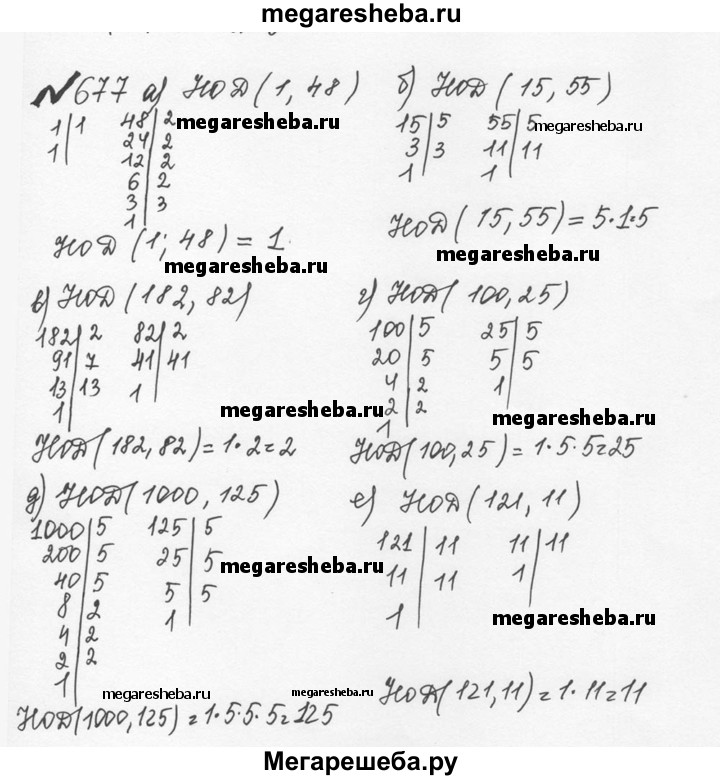 megaresheba.ru
№677 а) НОД(1, 48) б) НОД(15, 55)
1|1 48|2 megaresheba.ru 15|5 55|5 megaresheba.ru
1| 24|2 3|3 11|11
12|2 1| 1|
6|2
3|3
1|
НОД(1; 48) = 1. НОД(15, 55) = 5·1=5
megaresheba.ru megaresheba.ru
в) НОД(182, 82) г) НОД(100, 25)
182|2 82|2 100|5 25|5
91|7 41|41 20|5 5|5
13|13 1| 4|2 1|
1| 2|2
1
megaresheba.ru
НОД(182, 82) = 1·2=2 НОД(100, 25) = 1·5·5=25
д) НОД(1000, 125) е) НОД(121, 11)
1000|5 125|5 121|11 11|11
200|5 25|5 megaresheba.ru 11|11 1|
40|5 5|5 1|
8|2 1| megaresheba.ru
4|2
2|2
1|
megaresheba.ru megaresheba.ru НОД(121, 11) = 1·11=11
НОД(1000, 125) = 1·5·5·5=125
Мегарешеба.ру